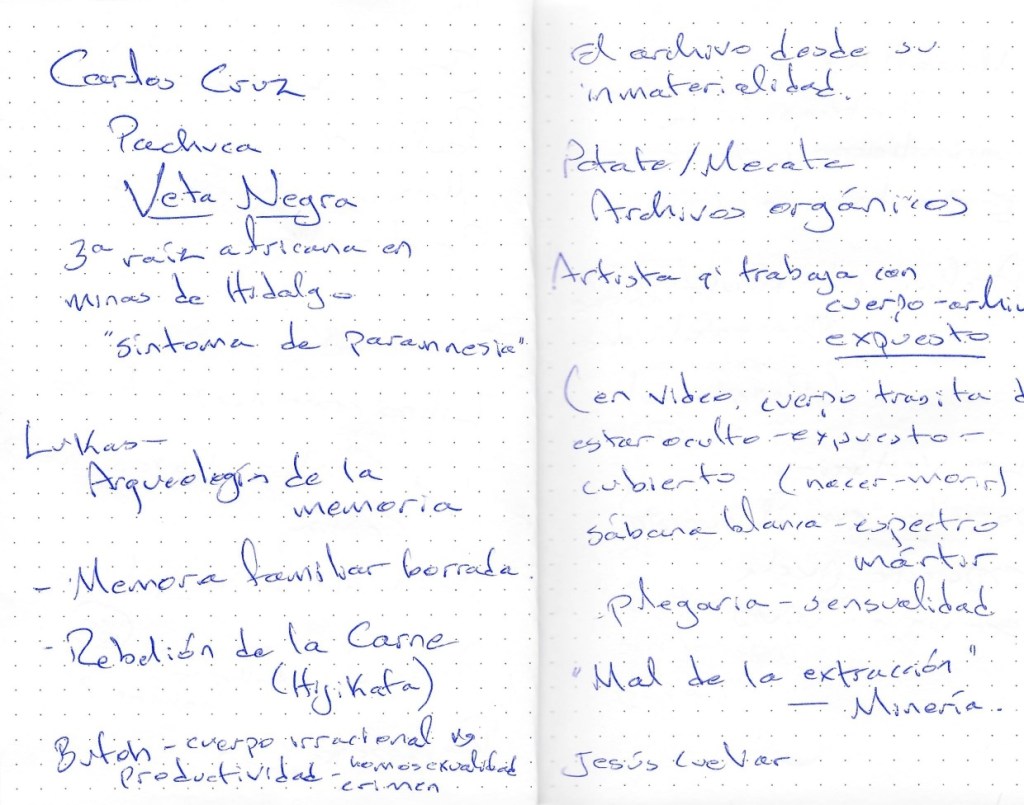 Carlos Cruz
Pachuca
Veta Negra
3ª raíz africana en
minas de Hidalgo
"síntoma de paramnesia"
Lukas—
Arqueología de la
memoria
- Memora familiar borrada
- Rebelión de la Carne
(Hijikata)
Butoh - cuerpo irracional vs
productividad - homosexualidad
crimen
El archivo desde su
inmaterialidad.
Petate/Mecate
Archivos orgánicos
Artista q' trabaja con
cuerpo-archiv
expuesto
(en video, cuerpo trasita d
estar oculto - expuesto -
cubierto (nacer-morir)
sábana blanca - espectro
mártir
plegaria - sensualidad
"Mal de la extracción"
— Minería..
Jesús Cuevar